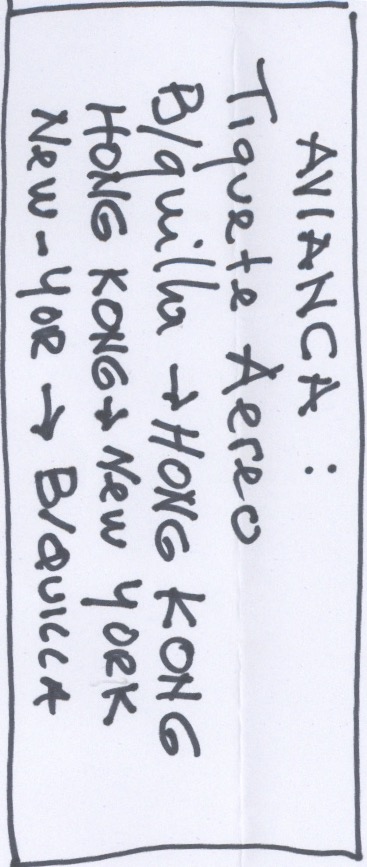 AVIANCA :
Tiquete Aereo
B/quilla → HONG KONG
HONG KONG → New YORK
New-YOR → B/QUILLA